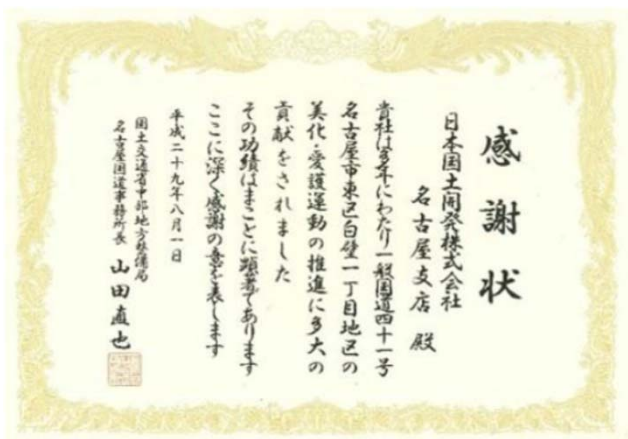 感謝状
日本国土開発株式会社
名古屋支店 殿
貴社は多年にわたり一般国道四十一号
名古屋市東区白壁一丁目地区の
美化・愛護運動の推進に多大の
貢献をされました
その功績はまことに顕著であります
ここに深く感謝の意を表します
平成二十九年八月一日
国土交通省中部地方整備局
名古屋国道事務所長 山田直也